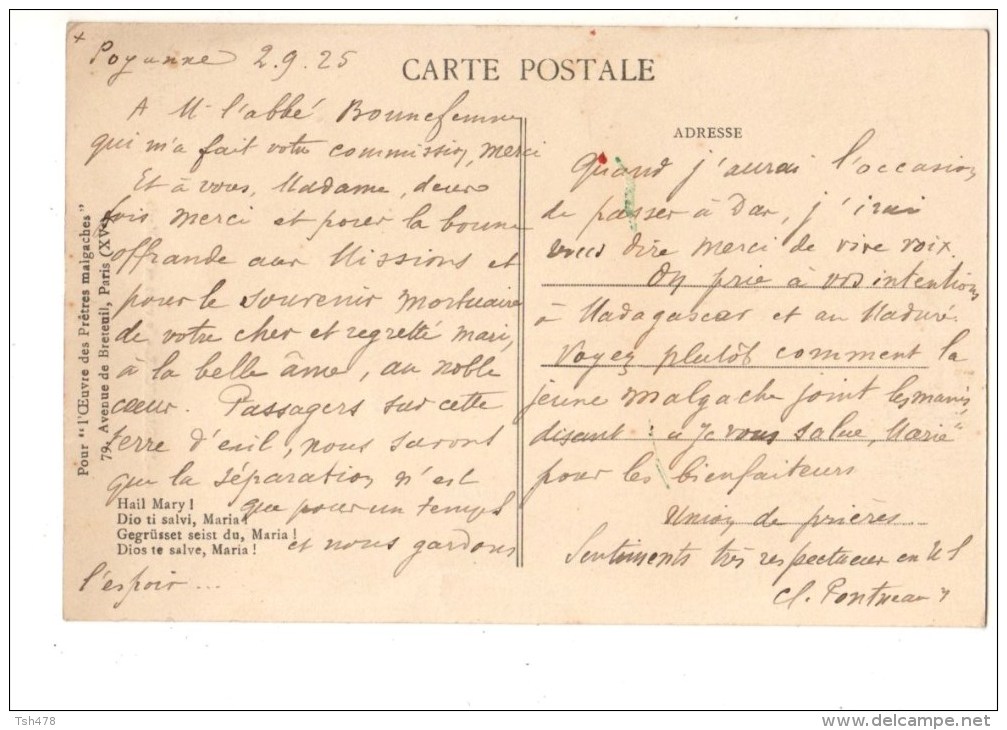 +
Poyanne 2.9.25
CARTE POSTALE
A M. l'abbé Bonnefemme
qui m'a fait votre commission, merci
Et à vous, Madame, deux
fois merci et pour la bonne
offrande aux Missions et
pour le souvenir mortuaire
de votre cher et regretté mari,
à la belle âme, au noble
cœur. Passagers sur cette
terre d'exil, nous savons
que la séparation n'est
que pour un temps
et nous gardons
l'espoir ...
Pour "l'Œuvre des Prêtres malgaches"
79, Avenue de Breteuil, Paris (XVe)
Hail Mary !
Dio ti salvi, Maria !
Gegrüsset seist du, Maria !
Dios te salve, Maria !
ADRESSE
Quand j'aurai l'occasion
de passer à Dax, j'irai
vous dire merci de vive voix.
On prie à vos intentions
à Madagascar et au Maduré.
Voyez plutôt comment la
jeune Malgache joint les mains,
disant : « Je vous salue, Marie"
pour les bienfaiteurs
Union de prières
Sentiments très respectueux en N S
Cl. Pontneau
Tsh478
www.delcampe.net